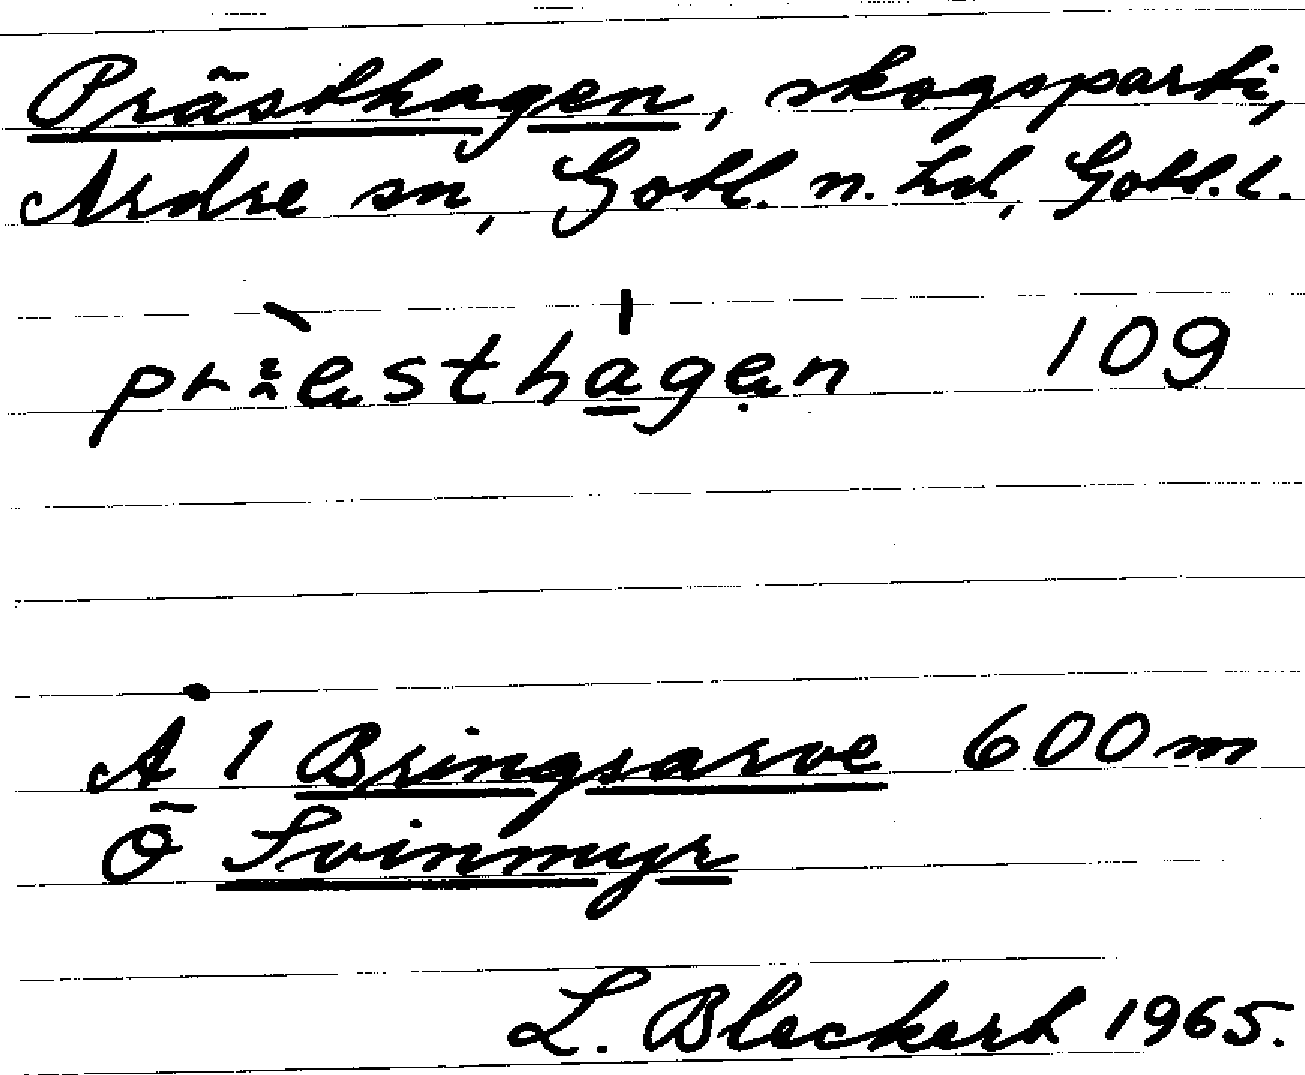 Prästhagen, skogsparti,
Ardre sn, Gotl. n. hd, Gotl. l.
præsthagen 109
Å 1 Bringsarve 600 m
Ö Svinmyr
L. Bleckert 1965.